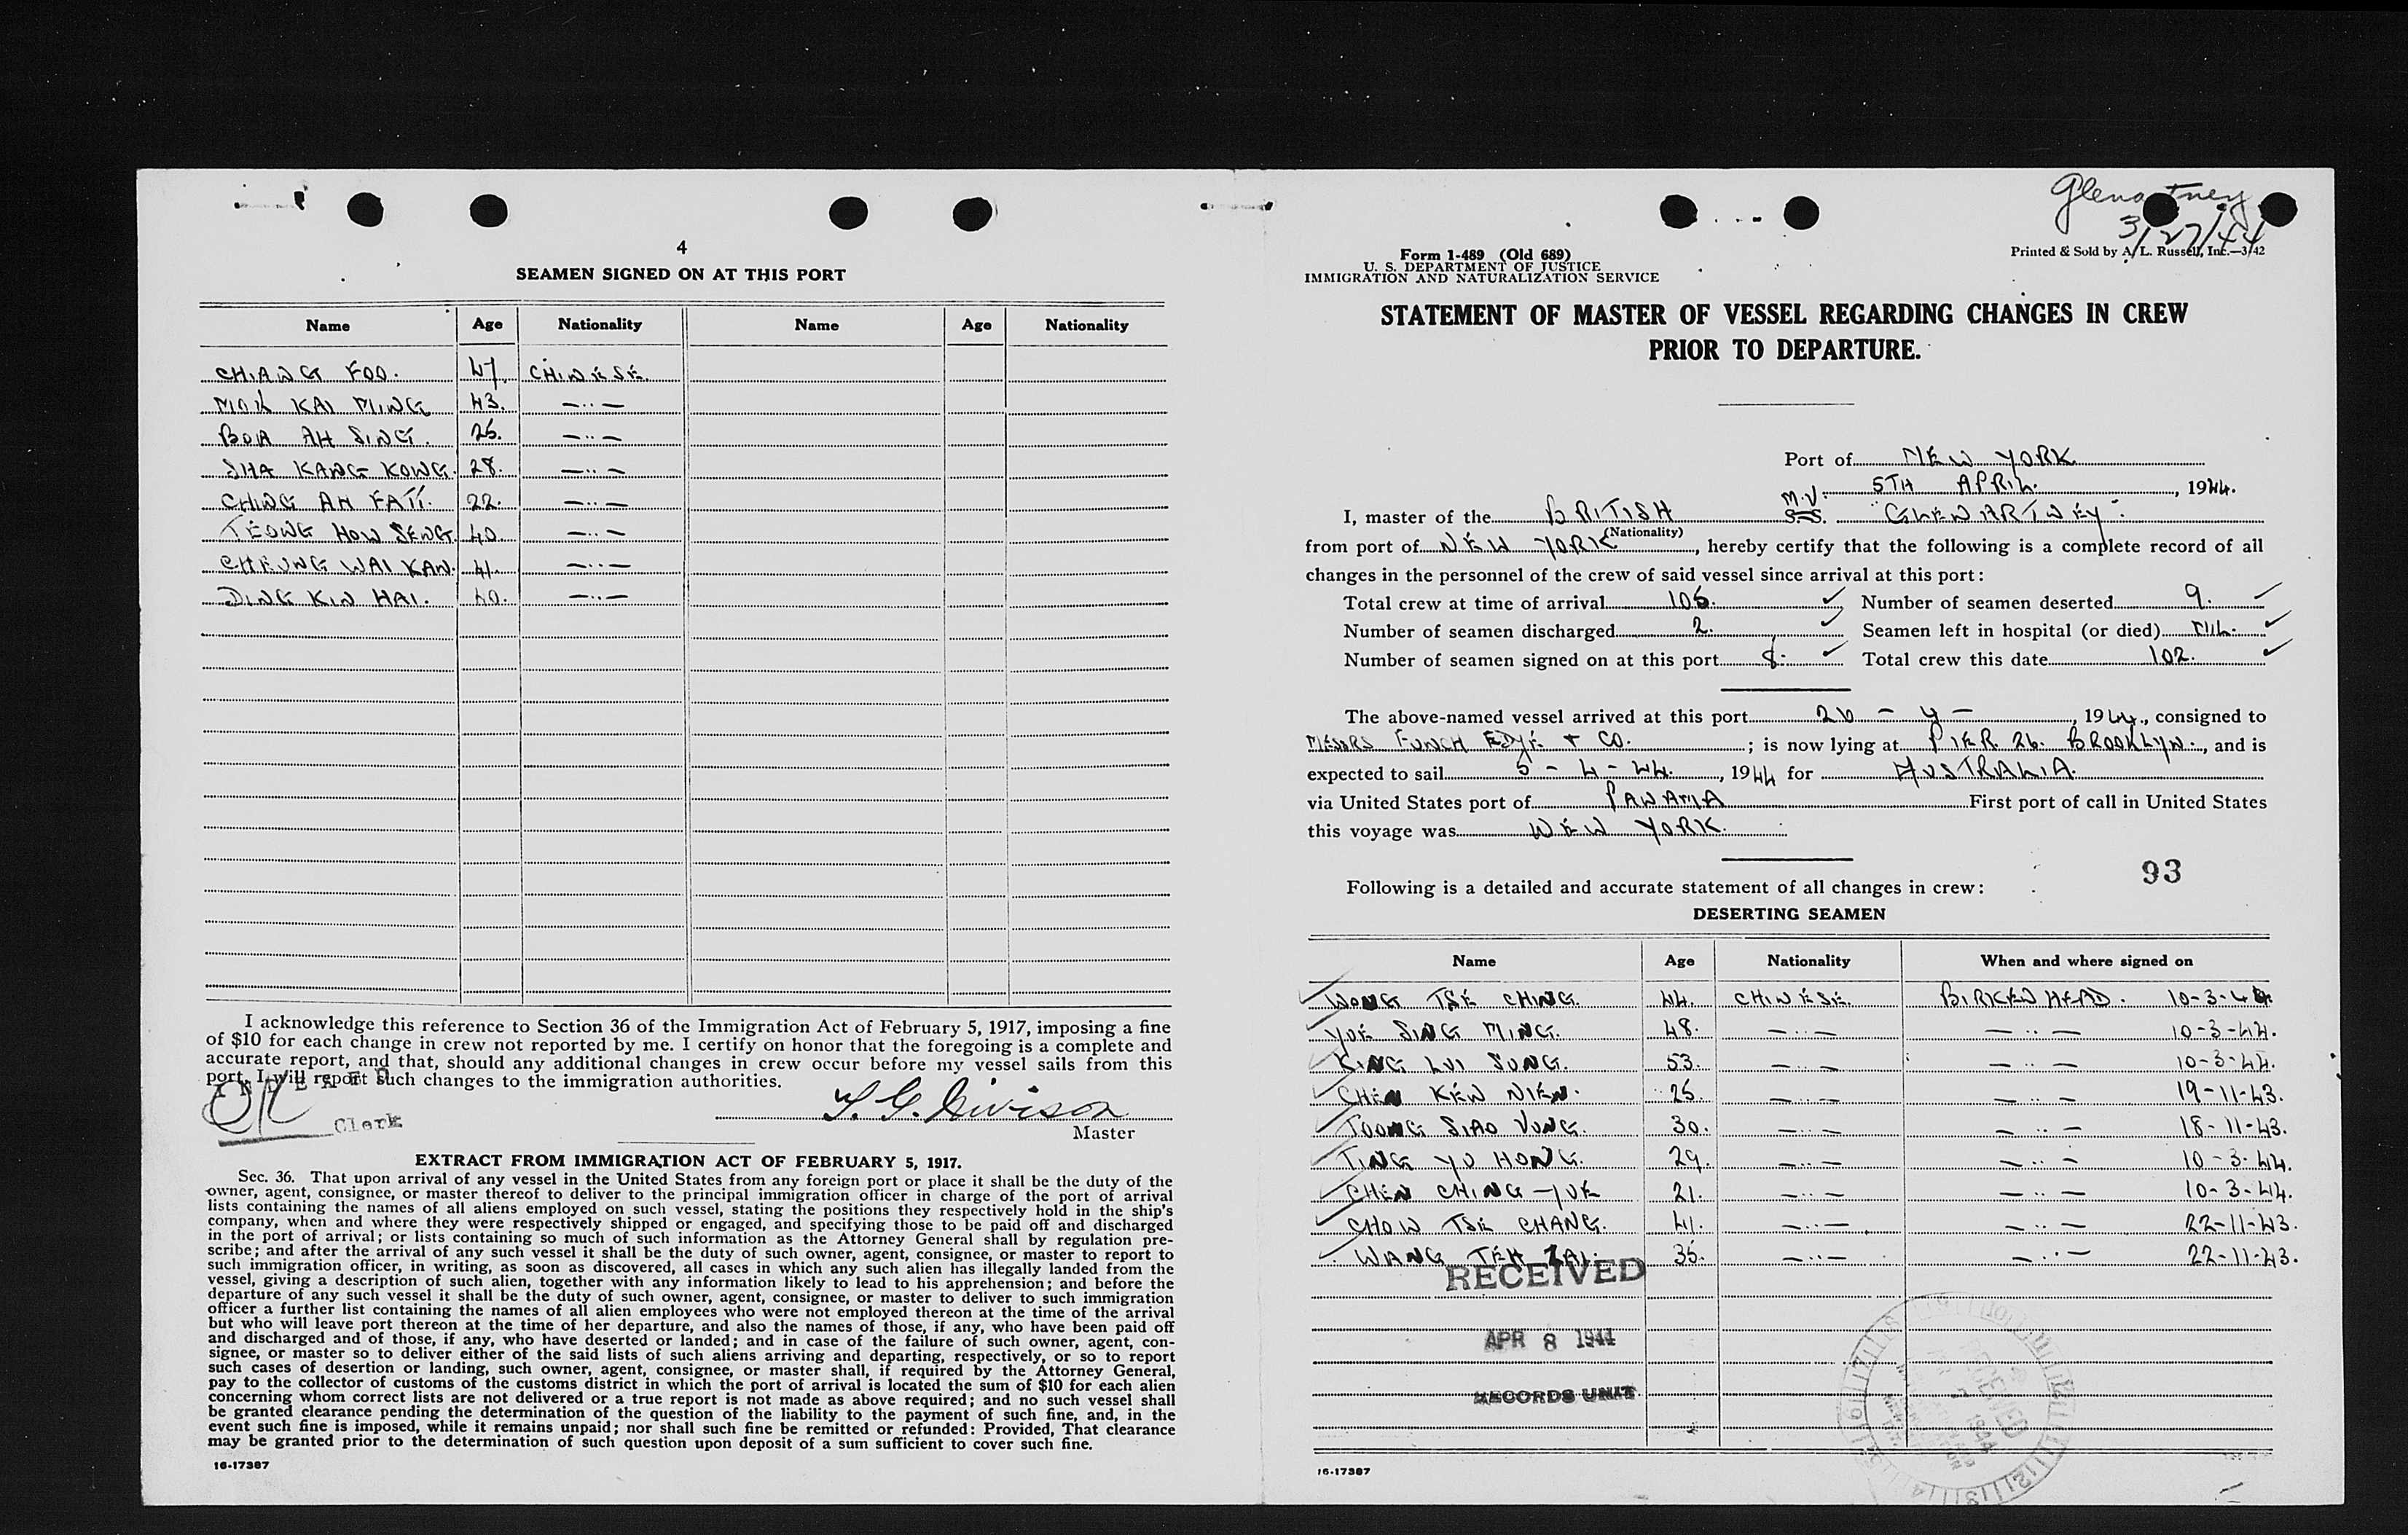 4
SEAMEN SIGNED ON AT THIS PORT
Name Age Nationality Name Age Nationality
CHIANG FOO. 47. CHINESE.
MOK KAI MING 43. —··—
BOA AH SING. 26. —··—
SHA KANG KONG. 28. —··—
CHING AH FATT. 22. —··—
TEONG HOW SENG. 40. —··—
CHEUNG WAI KAN. 41. —··—
DING KIN HAI. 40. —··—
I acknowledge this reference to Section 36 of the Immigration Act of February 5, 1917, imposing a fine
of $10 for each change in crew not reported by me. I certify on honor that the foregoing is a complete and
accurate report, and that, should any additional changes in crew occur before my vessel sails from this
port, I will report such changes to the immigration authorities.
Clerk
Master
EXTRACT FROM IMMIGRATION ACT OF FEBRUARY 5, 1917.
Sec. 36. That upon arrival of any vessel in the United States from any foreign port or place it shall be the duty of the
owner, agent, consignee, or master thereof to deliver to the principal immigration officer in charge of the port of arrival
lists containing the names of all aliens employed on such vessel, stating the positions they respectively hold in the ship's
company, when and where they were respectively shipped or engaged, and specifying those to be paid off and discharged
in the port of arrival; or lists containing so much of such information as the Attorney General shall by regulation pre-
scribe; and after the arrival of any such vessel it shall be the duty of such owner, agent, consignee, or master to report to
such immigration officer, in writing, as soon as discovered, all cases in which any such alien has illegally landed from the
vessel, giving a description of such alien, together with any information likely to lead to his apprehension; and before the
departure of any such vessel it shall be the duty of such owner, agent, consignee, or master to deliver to such immigration
officer a further list containing the names of all alien employees who were not employed thereon at the time of the arrival
but who will leave port thereon at the time of her departure, and also the names of those, if any, who have been paid off
and discharged and of those, if any, who have deserted or landed; and in case of the failure of such owner, agent, con-
signee, or master so to deliver either of the said lists of such aliens arriving and departing, respectively, or so to report
such cases of desertion or landing, such owner, agent, consignee, or master shall, if required by the Attorney General,
pay to the collector of customs of the customs district in which the port of arrival is located the sum of $10 for each alien
concerning whom correct lists are not delivered or a true report is not made as above required; and no such vessel shall
be granted clearance pending the determination of the question of the liability to the payment of such fine, and, in the
event such fine is imposed, while it remains unpaid; nor shall such fine be remitted or refunded: Provided, That clearance
may be granted prior to the determination of such question upon deposit of a sum sufficient to cover such fine.
16-17387
Glenartney
3/27/44
Form I-489 (Old 689)
U. S. DEPARTMENT OF JUSTICE
IMMIGRATION AND NATURALIZATION SERVICE
Printed & Sold by A. L. Russell, Inc.—3/42
STATEMENT OF MASTER OF VESSEL REGARDING CHANGES IN CREW
PRIOR TO DEPARTURE.
Port of NEW YORK
5TH APRIL, 1944.
I, master of the BRITISH M.V. S.S. "GLENARTNEY".
(Nationality)
from port of NEW YORK, hereby certify that the following is a complete record of all
changes in the personnel of the crew of said vessel since arrival at this port:
Total crew at time of arrival 105. Number of seamen deserted 9.
Number of seamen discharged 2. Seamen left in hospital (or died) NIL.
Number of seamen signed on at this port 8. Total crew this date 102.
The above-named vessel arrived at this port 26 - 4 -, 1944., consigned to
MESSRS FUNCH EDYE + CO.; is now lying at PIER 26. BROOKLYN., and is
expected to sail 5 - 4 - 44., 1944 for AUSTRALIA.
via United States port of PANAMA First port of call in United States
this voyage was NEW YORK.
93
Following is a detailed and accurate statement of all changes in crew:
DESERTING SEAMEN
Name Age Nationality When and where signed on
WONG TSE CHING. 44. CHINESE. BIRKENHEAD. 10-3-44
YUE SING MING. 48. —··— —··— 10-3-44.
KING LUI SUNG. 53. —··— —··— 10-3-44.
CHEN KEW NIEN. 25. —··— —··— 19-11-43.
TOONG SIAO VUNG. 30. —··— —··— 18-11-43.
TING YU HONG. 29. —··— —··— 10-3-44.
CHEN CHING-YUE 21. —··— —··— 10-3-44.
CHOW TSE CHANG. 41. —··— —··— 22-11-43.
WANG TEH ZAI. 35. —··— —··— 22-11-43.
RECEIVED
APR 8 1944
RECORDS UNIT
RECEIVED
1944
16-17387